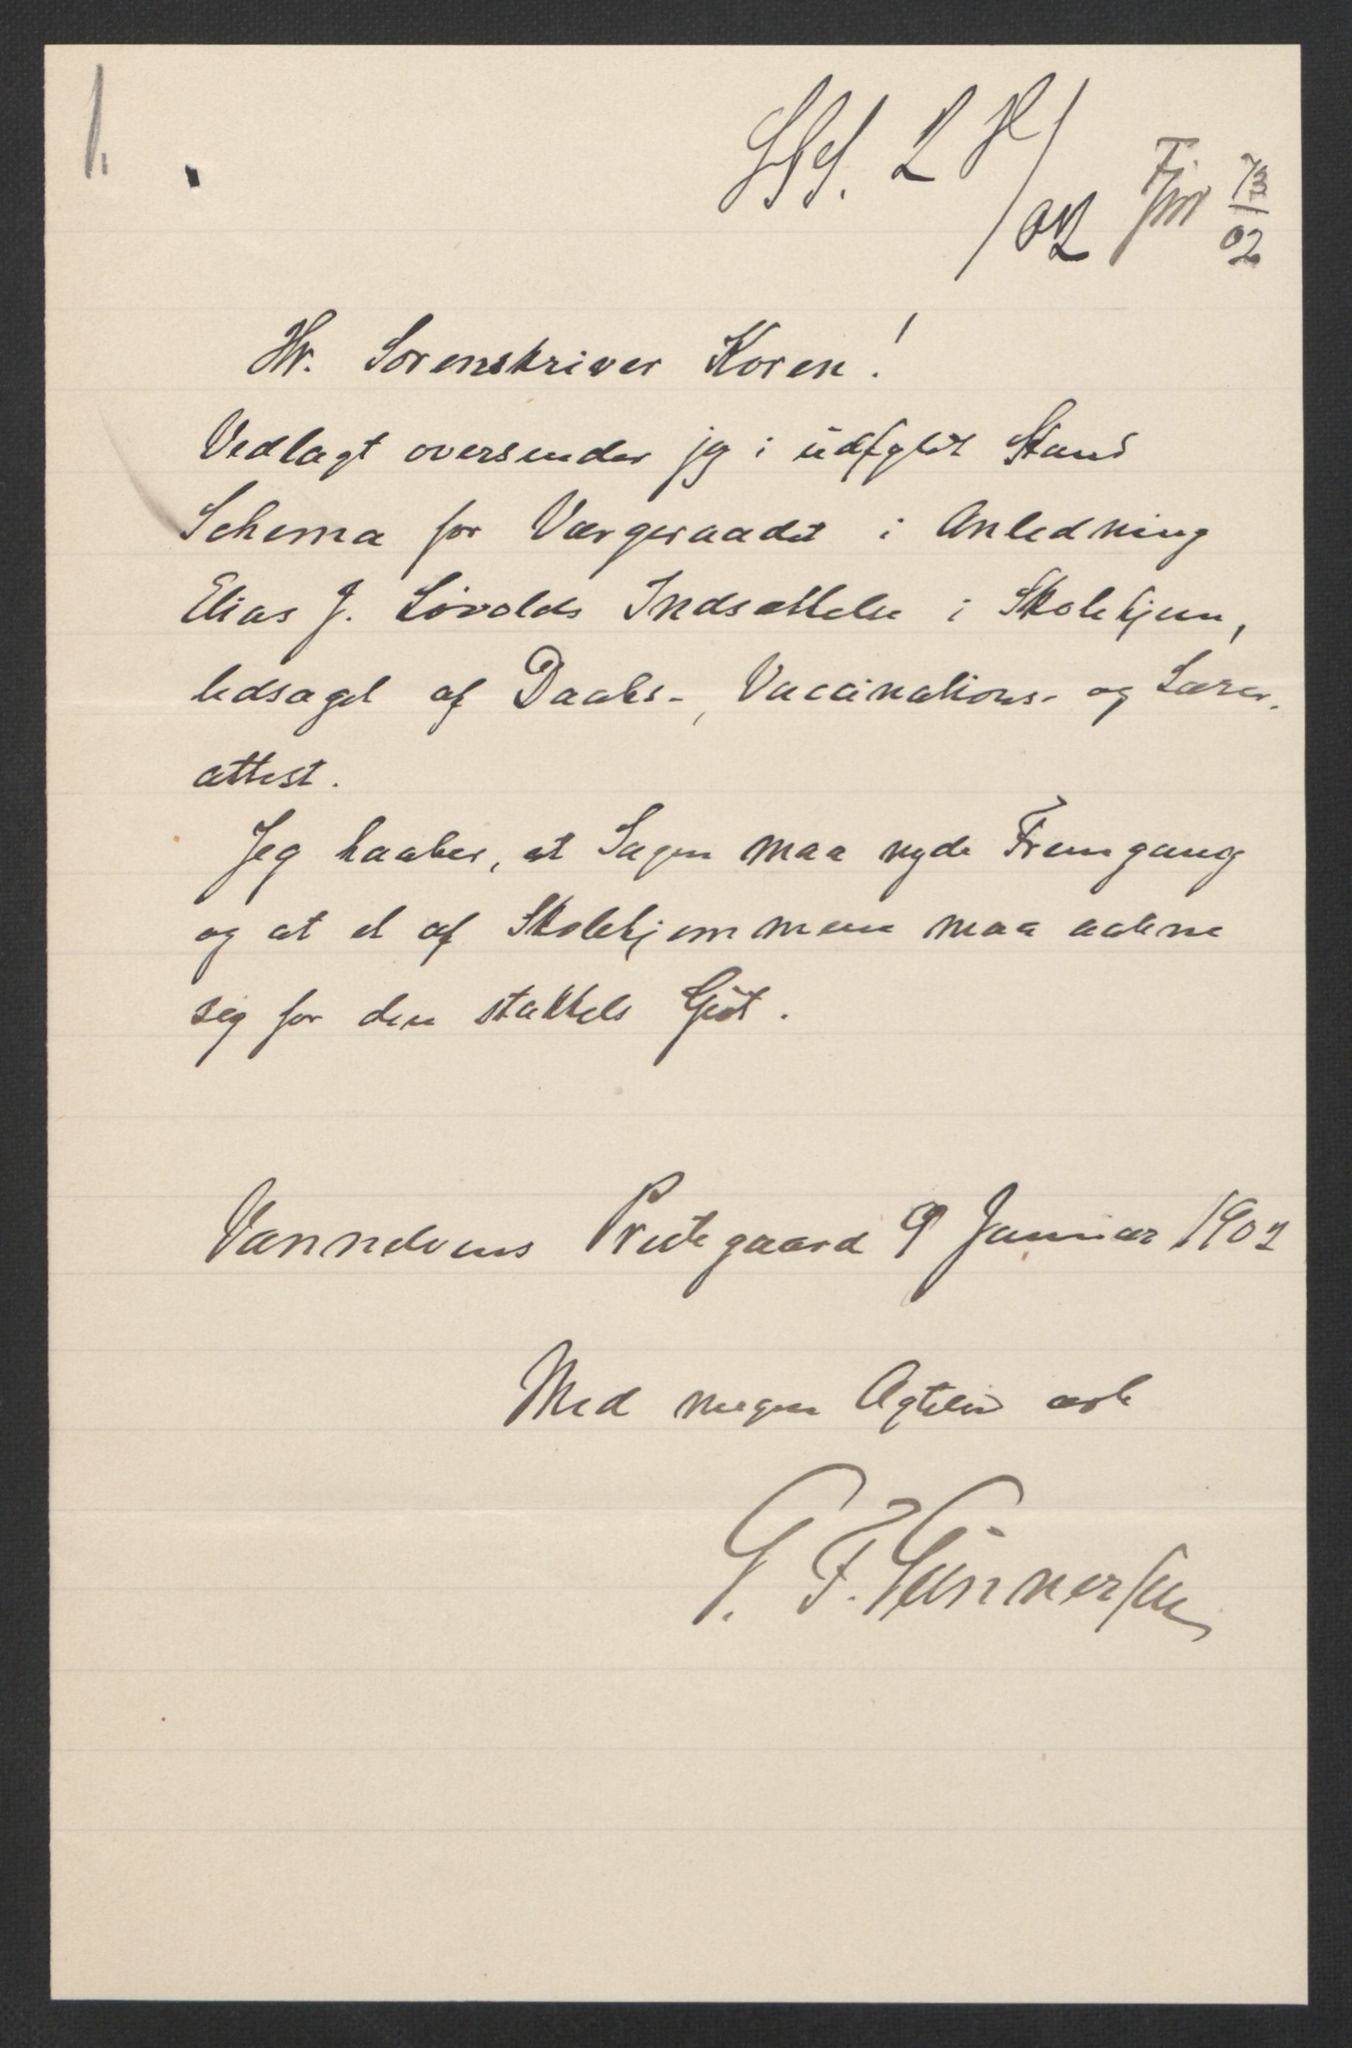 1.
02
02
Hr. Sorenskriver Koren!
Vedlagt oversender jeg i udfyldt Stand
Schema for Værgeraadet i Anledning
Elias J. Lovolds Indsættelse i Skolehjem,
ledsaget af Daabs-, Vaccinations- og Lærer-
attest.
Jeg haaber, at Sagen maa nyde Fremgang
og at et af Skolehjemmene maa aabne
sig for den stakkels Gut.
Vannelvens Prestegaard 9 Januar 1902
Med megen Agtelse ærb
G. F. Gunnersen